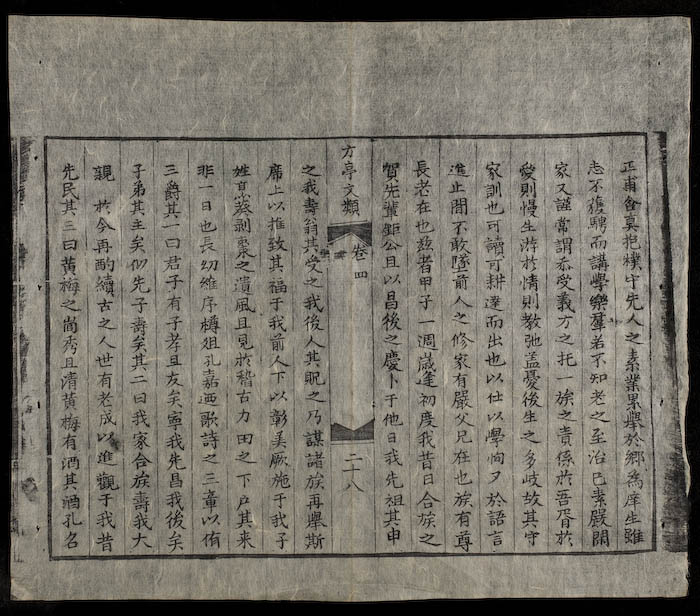 正甫含真抱樸守先人之素業累舉於鄉為庠生雖
志不獲騁而講學樂群若不知老之至治已素嚴閑
家又謹常謂忝受義方之托一族之責係於吾胥於
愛則慢生游於情則教弛蓋憂後生之多歧故其守
家訓也可讀可耕達而出也以仕以學恂夕於語言
進止間不敢墜前人之修家有嚴父兄在也族有尊
長老在也茲者甲子一週歲逢初度我昔日合族之
賀先輩鉅公且以昌後之慶卜于他日我先祖其申
方亭文類
卷四
二十八
之我壽翁其受之我後人其貺之乃謀諸族再舉斯
席上以推致其福于我前人下以彰美厥施于我子
姓烹葵剝棗之遺風且見於稽古力田之下戶其來
非一日也長幼維序樽俎孔嘉迺歌詩之三章以侑
三爵其一曰君子有子孝且友矣寧我先昌我後矣
子弟其主矣似先子壽矣其二曰我家合族壽我大
親於今再酌續古之人世有老成以進觀于我昔
先民其三曰黃梅之尚秀且清黃梅有酒其酒孔名